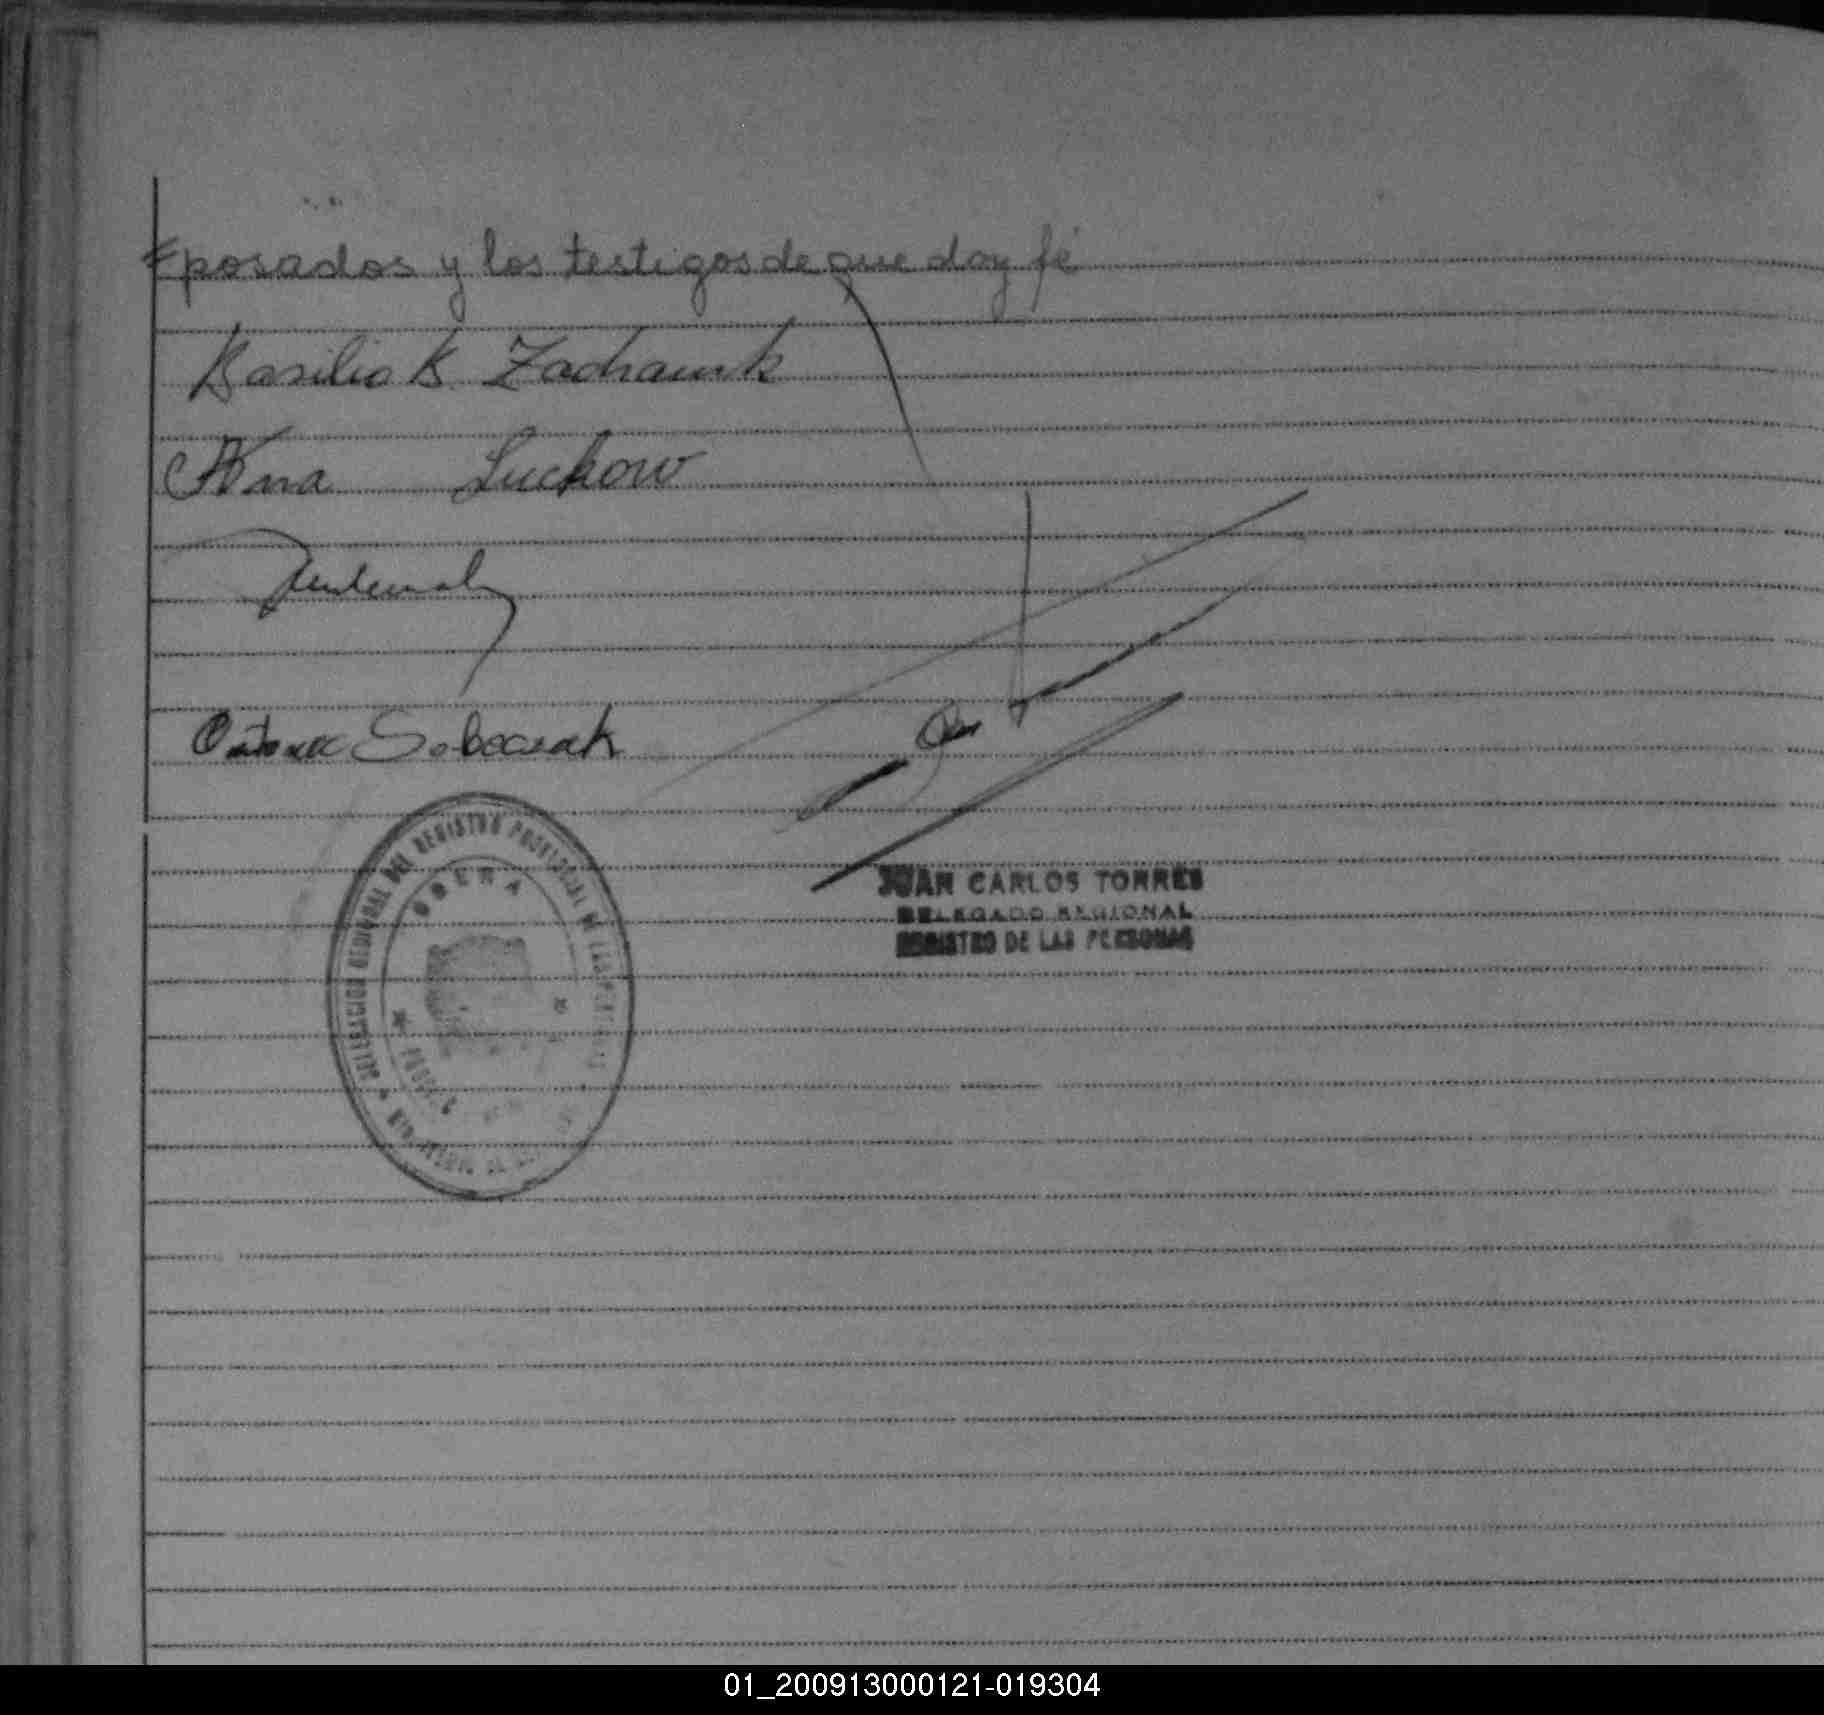 Eposados y los testigos de que doy fé
Basilio B. Zacharuk
Ana Luckow
Sobeczak
DELEGACION REGIONAL DEL REGISTRO PROVINCIAL DE LAS PERSONAS
OBERA
JUAN CARLOS TORRES
DELEGADO REGIONAL
REGISTRO DE LAS PERSONAS
01_200913000121-019304